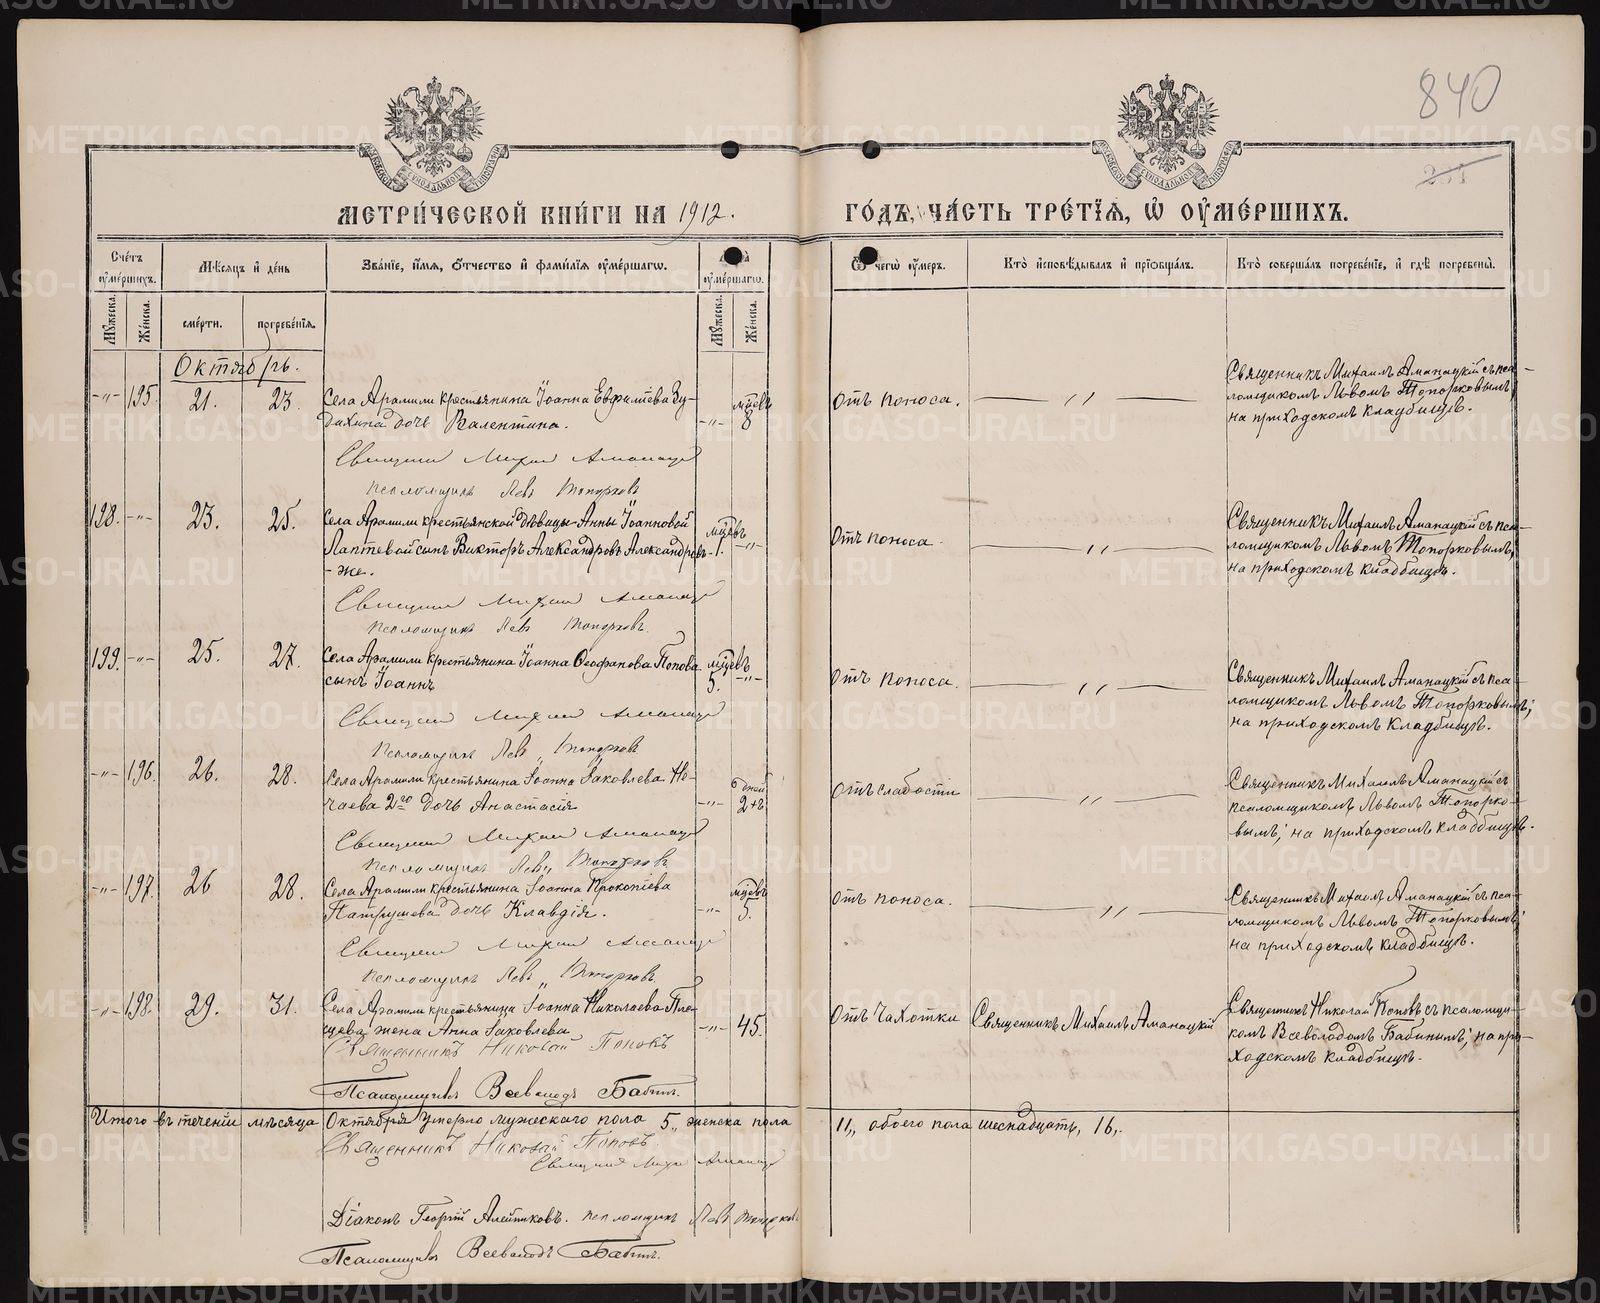 840
МЕТРИЧЕСКОЙ КНИГИ НА 1912.
ГОДЪ, ЧАСТЬ ТРЕТІЯ, Ѡ ОУМЕРШИХЪ.
Счетъ оумершихъ.
Мѣсяцъ и день
Званіе, имя, отчество и фамилія оумершагѡ.
оумершагѡ.
Ѿ чегѡ оумеръ.
Кто исповѣдывалъ и пріобщалъ.
Кто совершалъ погребеніе, и гдѣ погребены.
Мужеска.
Женска.
смерти.
погребенія.
Мужеска.
Женска.
Октябрь.
-"- 195. 21. 23. Села Арамили крестьянина Іоанна Евфиміева Зу-
дихина дочь Валентина. -"- мцевъ 8
Отъ поноса. "
Священникъ Михаилъ Аманацкій съ пса-
ломщикомъ Львомъ Топорковымъ,
на приходскомъ кладбищѣ.
Священник Михаил Аманацкій
псаломщикъ Левъ Топорковъ
198. -"- 23. 25. Села Арамили крестьянской дѣвицы Анны Іоанновой
Лаптевой сынъ Викторъ Александровъ Александровъ
-же. мцевъ 1. -"-
Отъ поноса. "
Священникъ Михаилъ Аманацкій съ пса-
ломщикомъ Львомъ Топорковымъ,
на приходскомъ кладбищѣ.
Священник Михаил Аманацкій
псаломщикъ Левъ Топорковъ.
199. -"- 25. 27. Села Арамили крестьянина Іоанна Ѳеофанова Попова
сынъ Іоаннъ мцевъ 5. -"-
Отъ поноса. "
Священникъ Михаилъ Аманацкій съ пса-
ломщикомъ Львомъ Топорковымъ;
на приходскомъ кладбищѣ.
Священник Михаил Аманацкій
Псаломщикъ Левъ Топорковъ
-"- 196. 26. 28. Села Арамили крестьянина Іоанна Іаковлева Не-
чаева 2го дочь Анастасія -"- дней 2
Отъ слабости "
Священникъ Михаилъ Аманацкій съ
псаломщикомъ Львомъ Топорко-
вымъ; на приходскомъ кладбищѣ.
Священник Михаил Аманацкій
псаломщикъ Левъ Топорковъ
-"- 197. 26 28. Села Арамили крестьянина Іоанна Прокопіева
Патрушева дочь Клавдія. -"- мцевъ 5.
Отъ поноса. "
Священникъ Михаилъ Аманацкій съ пса-
ломщикомъ Львомъ Топорковымъ;
на приходскомъ кладбищѣ.
Священник Михаил Аманацкій
псаломщикъ Левъ Топорковъ
-"- 198. 29. 31. Села Арамили крестьянина Іоанна Николаева Пле-
щева жена Анна Іаковлева -"- 45.
Отъ чахотки Священникъ Михаилъ Аманацкій
Священникъ Николай Поповъ съ псаломщи-
комъ Всеволодомъ Бабинымъ; на при-
ходскомъ кладбищѣ.
Священникъ Николай Поповъ
Псаломщикъ Всеволодъ Бабинъ.
Итого въ теченіи мѣсяца Октября умерло мужескаго пола 5,, женска пола 11,, обоего пола шеснадцать, 16,.
Священникъ Николай Поповъ.
Священник Михаил Аманацкій
Діаконъ Георгій Алейниковъ. псаломщикъ Левъ Топорковъ
Псаломщикъ Всеволодъ Бабинъ.
METRIKI.GASO-URAL.RU